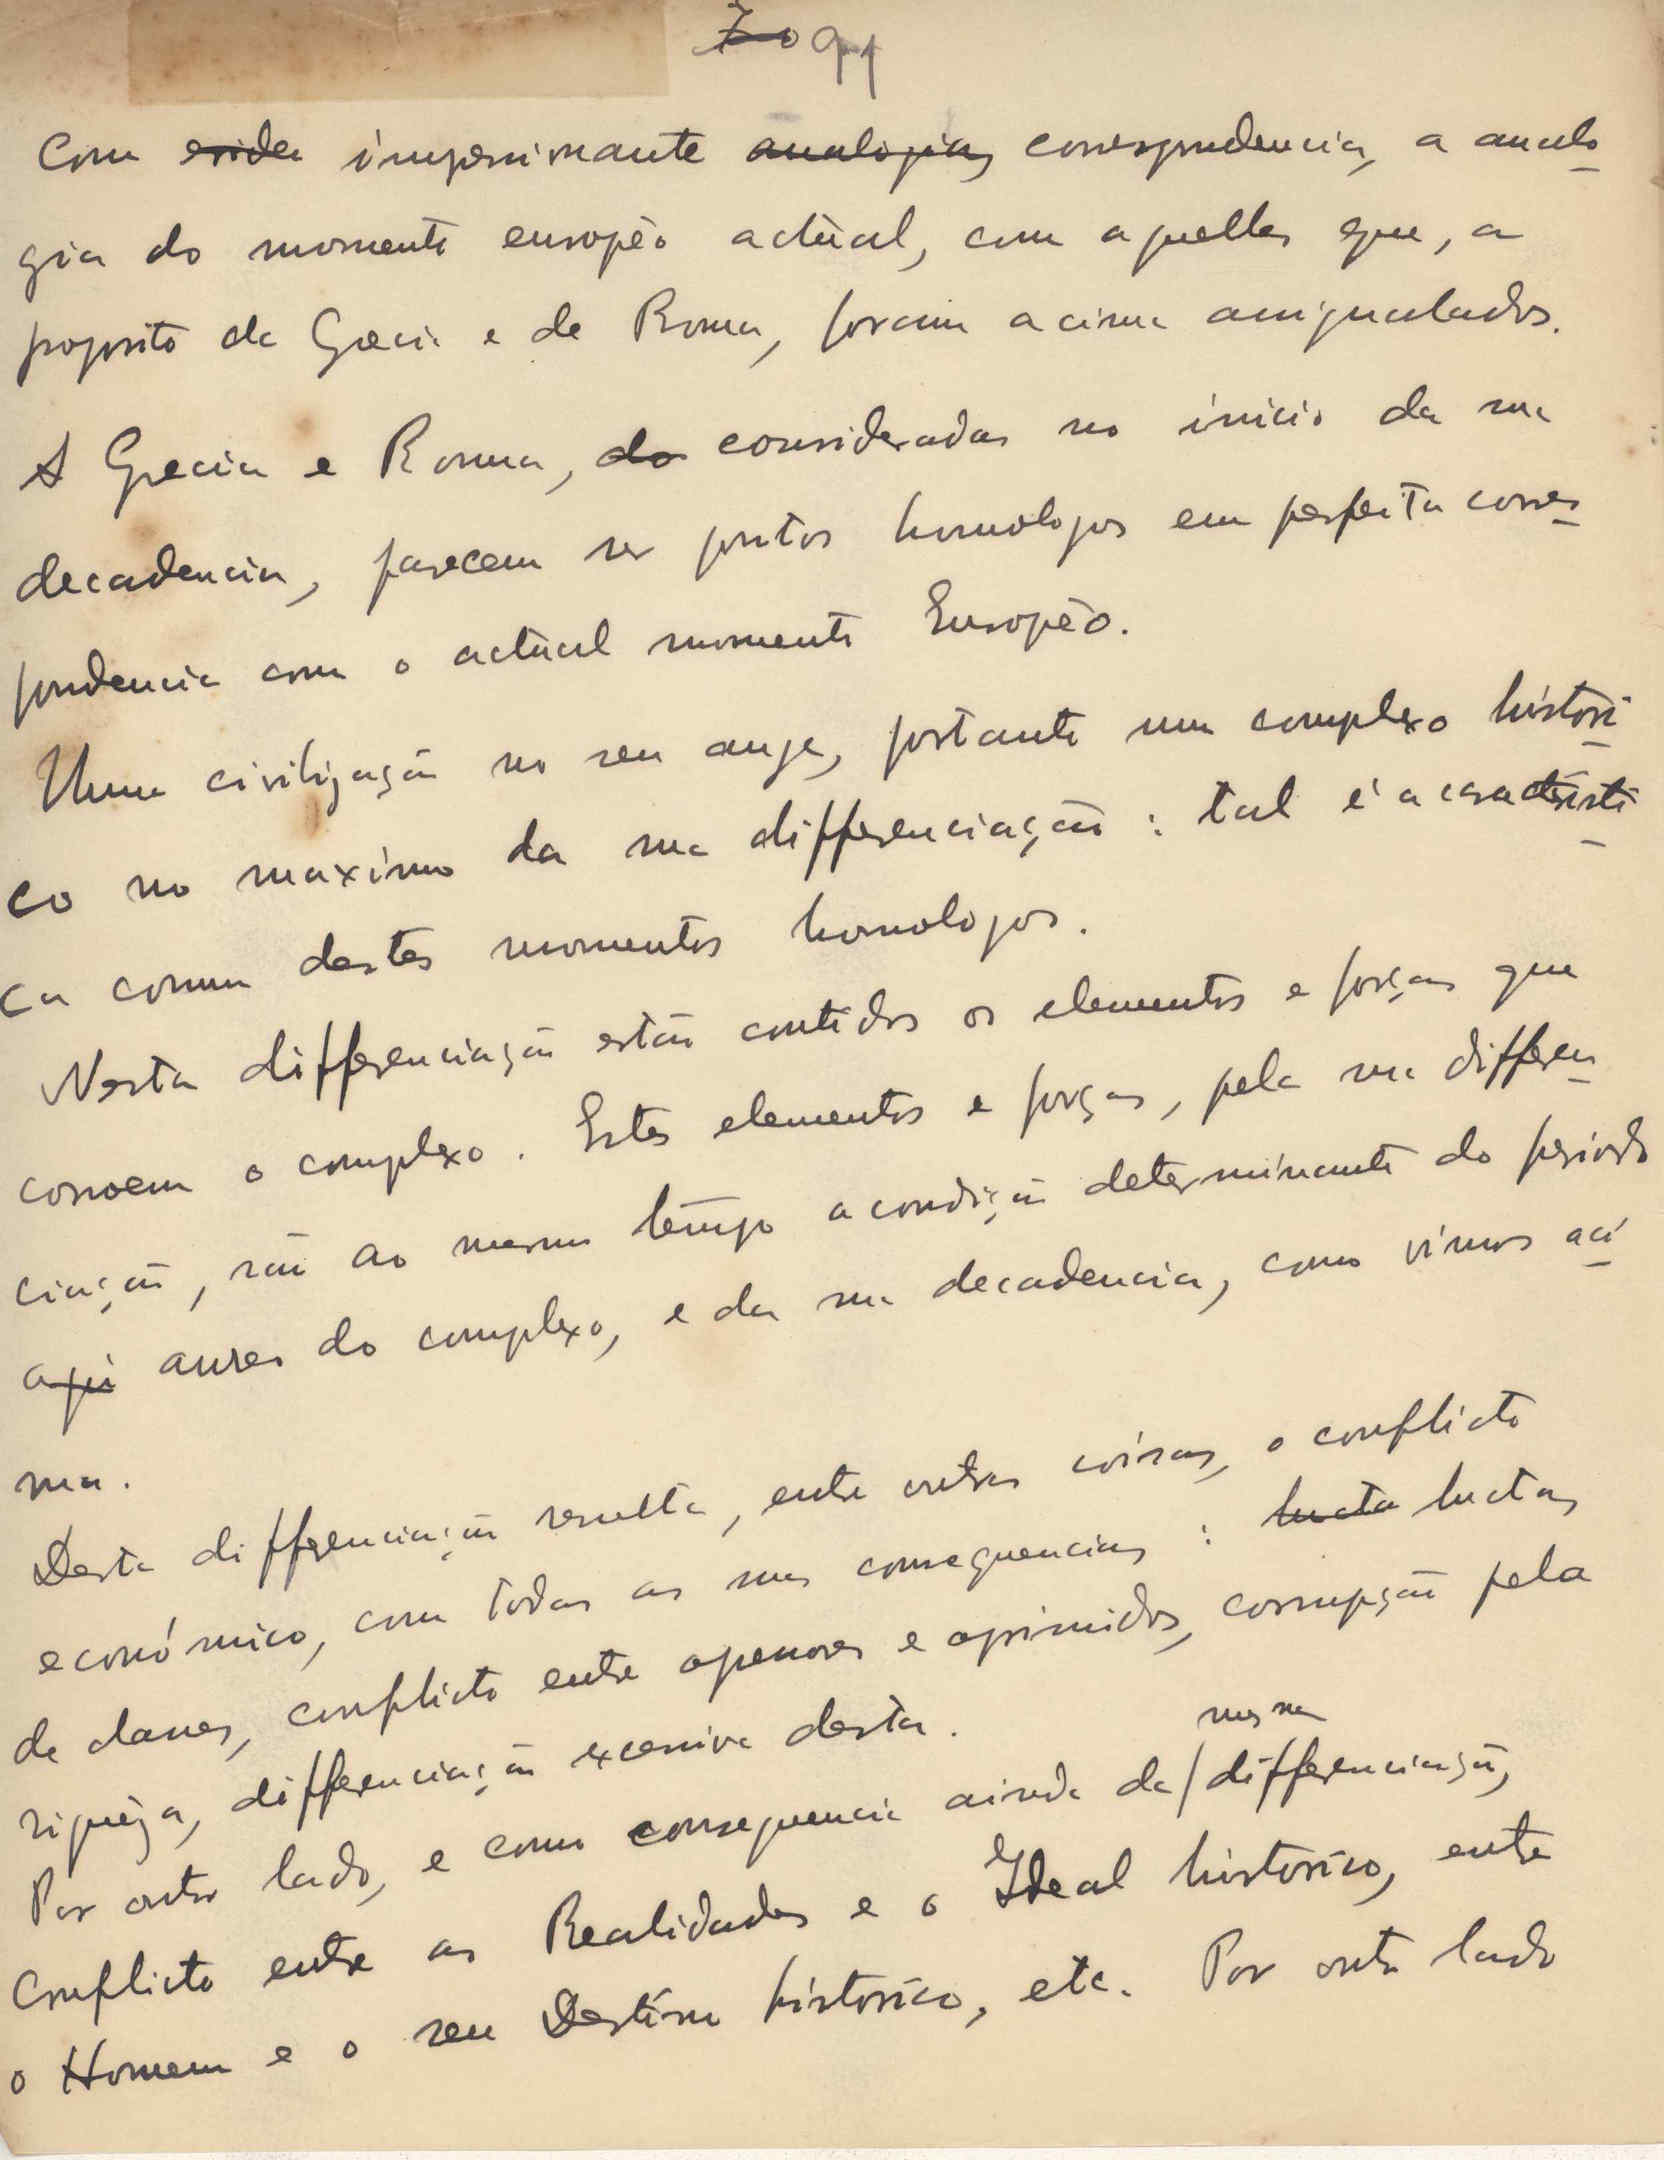 70 91
Com evide impressionante analogia, correspondencia, a analo
gia do momento europèo actùal, com aquelles que, a
proposito da Grecia e de Roma, foram acima assignalados.
A Grecia e Roma, do consideradas no inicio da sua
decadencia, parecem ser pontos homologos em perfeita corres
pondencia com o actùal momento Européo.
Uma civilização no seu auge, portanto um complexo histori
co no maximo da sua differenciação: tal é a caracteristi
ca comum destes momentos homologos.
Nesta differenciação estão contidos os elementos e forças que
corroem o complexo. Estes elementos e forças, pela sua differen
ciação, são ao mesmo tempo a condição determinante do periodo
aqui aureo do complexo, e da sua decadencia, como vimos aci
ma.
Desta differenciação resulta, entre outras coisas, o conflicto
económico, com todas as suas consequencias: lucta luctas
de classes, conflicto entre opressores e oprimidos, corrupção pela
riquèza, differenciação excessiva desta.
mesma
Por outro lado, e como consequencia ainda da/differenciação,
Conflicto entre as Realidades e o Ideal historico, entre
o Homem e o seu Destino historico, etc. Por outro lado